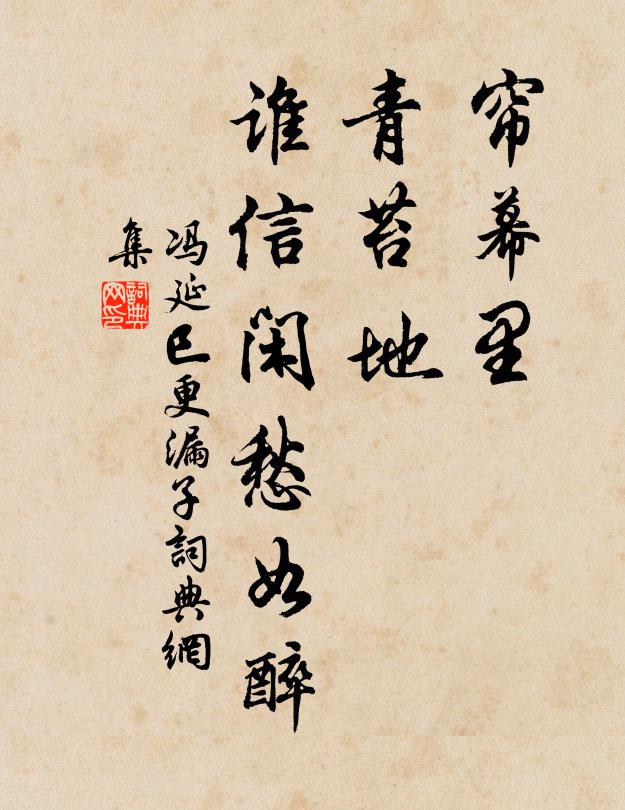 帘幕里
青苔地
谁信闲愁如醉
冯延巳更漏子詞典網
集
詞典
网印